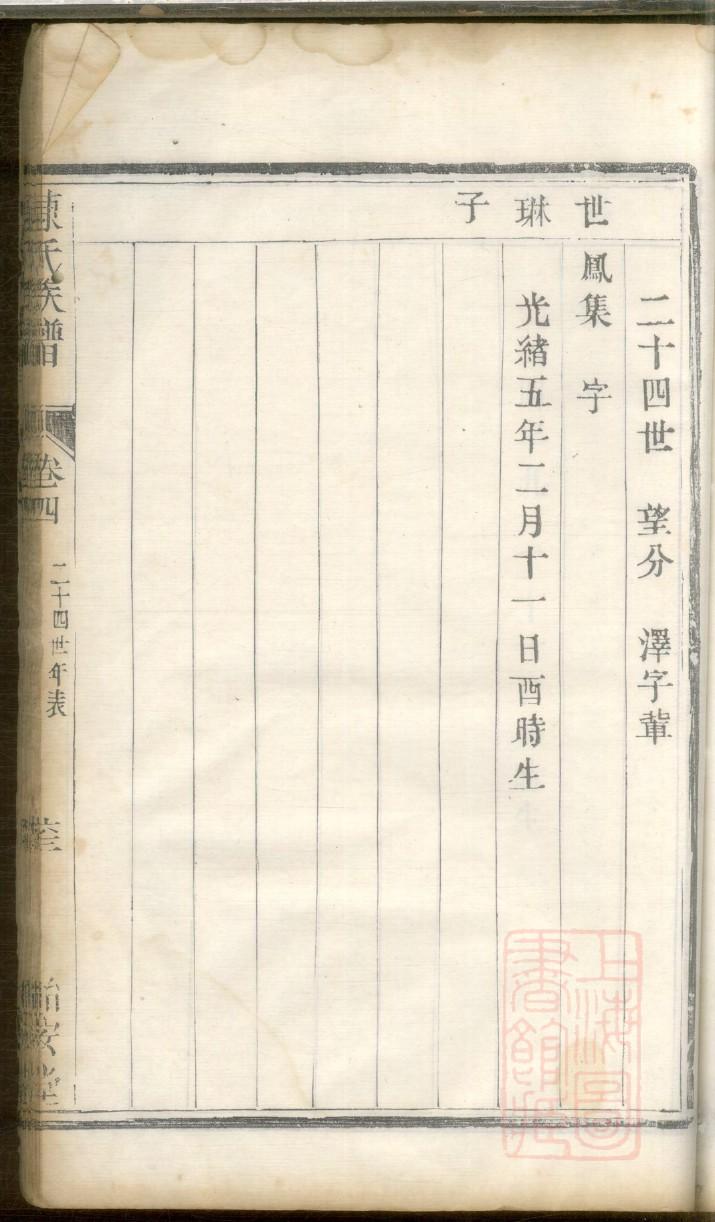 二十四世　望分　澤字軰
世　鳳集　字
琳　光緒五年二月十一日酉時生
子
陳氏族譜　卷四　二十四世年表
上海圖書館藏